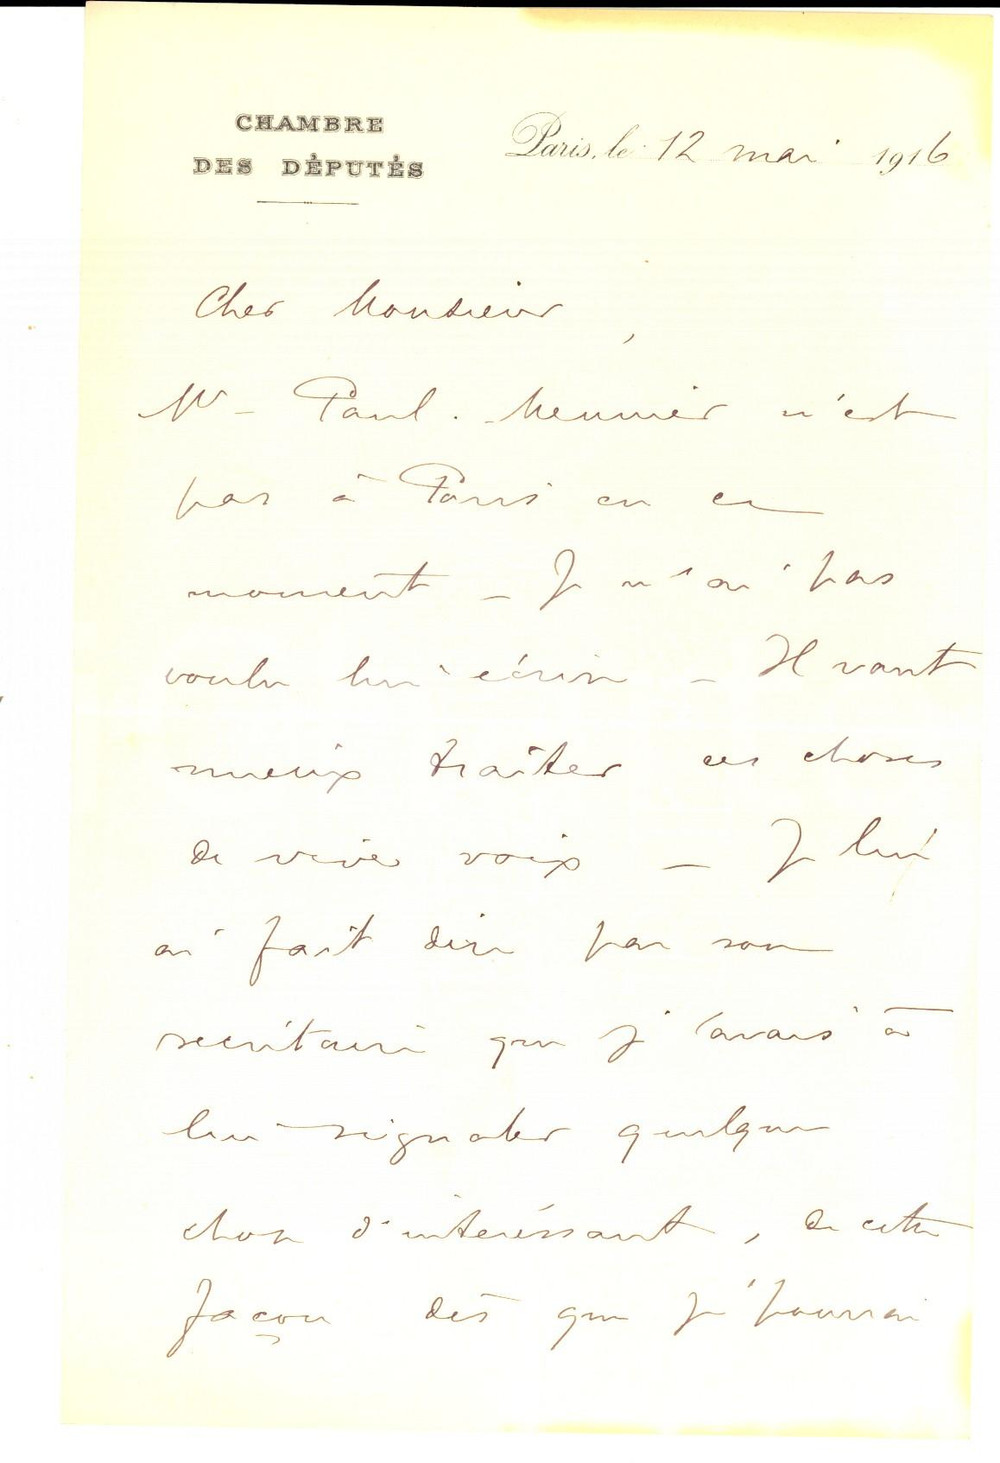 CHAMBRE
DES DÉPUTÉS
Paris, le 12 mai 1916
Cher Monsieur,
Mr - Paul. Meunier n'est
pas à Paris en ce
moment - Je n'ai pas
voulu lui écrire - Il vaut
mieux traiter ces choses
de vive voix - Je lui
ai fait dire par son
secrétaire que j'avais à
lui signaler quelque
chose d'intéressant, de cette
façon dès que je pourrai